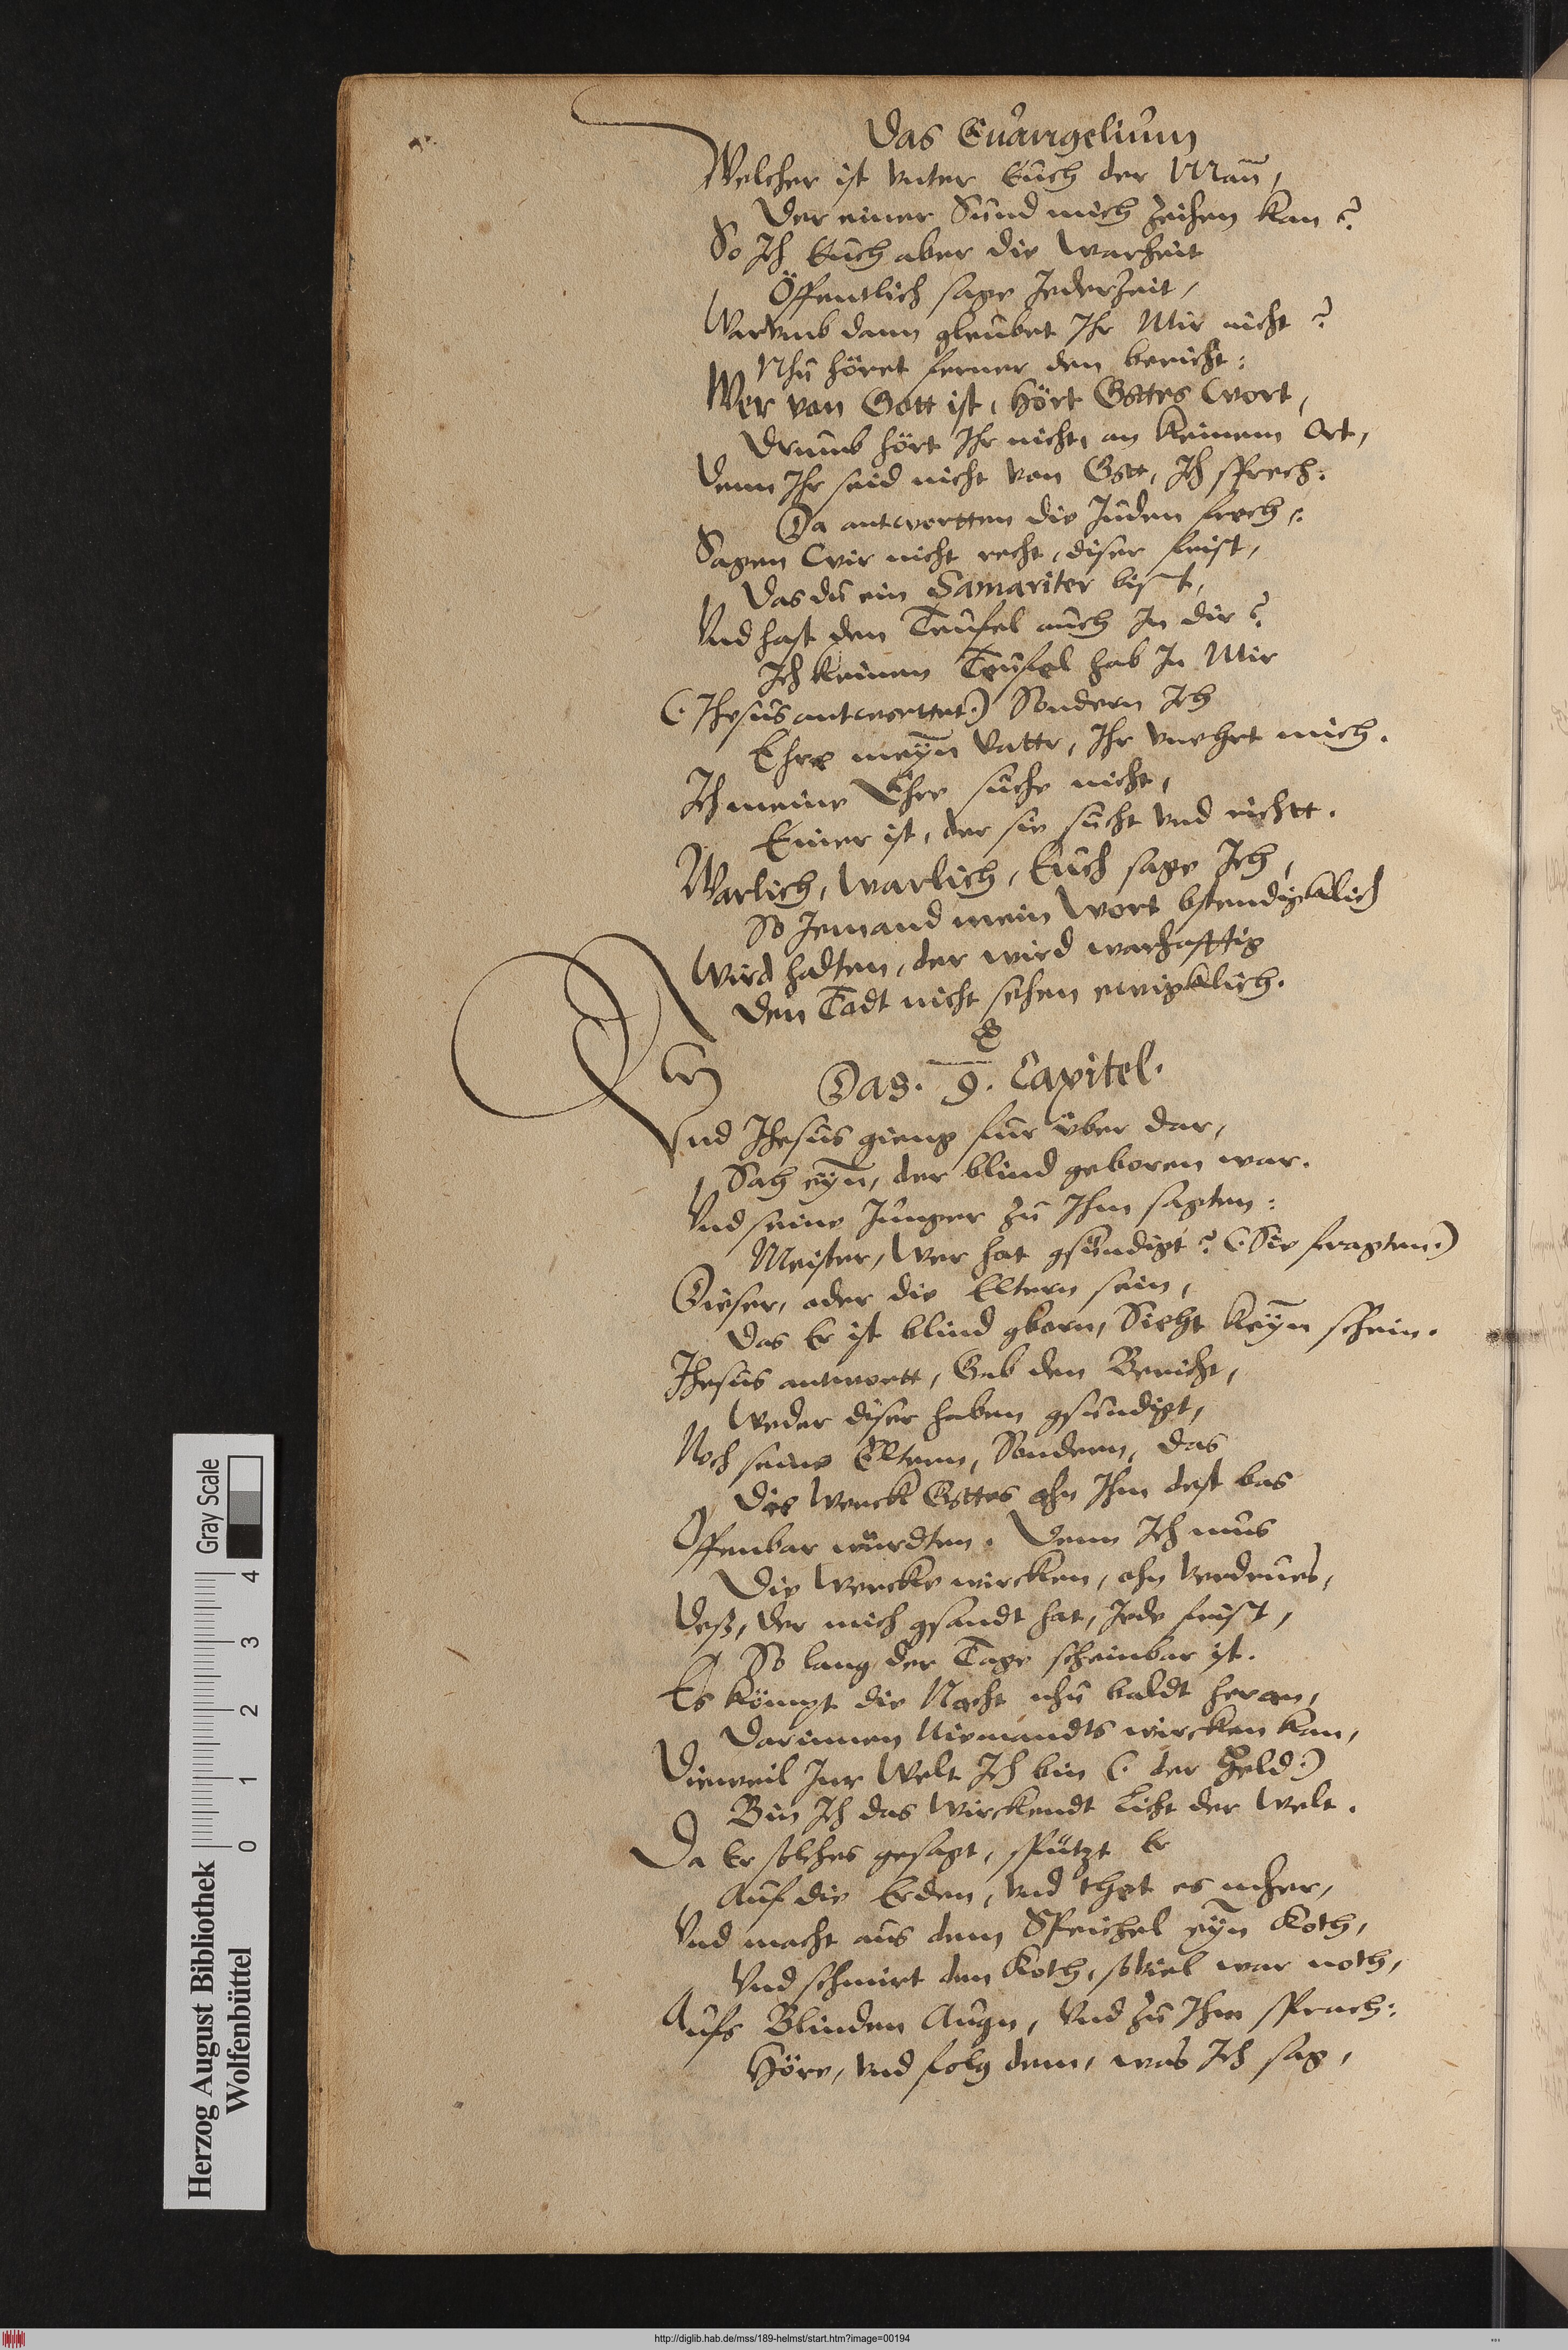 Das Euangelium
Welcher ist vnter Euch der Mañ,
Der einer Sünd mich zeihen kan?
So Ich Euch aber die warheit
Öffentlich sage Jederzeit,
Warumb dann gleubet Ihr Mir nicht?
Nhu höret ferner den bericht:
Wer von Gott ist, hört Gottes Wort,
Drumb hört Ihr nicht, an keinem Ort,
Denn Ihr seid nicht von Gott, Ich sprech.
Da antwortten die Juden frech:
Sagen Wir nicht recht, diser frist,
Das du ein Samariter bist,
Vnd hast den Teufel auch In dir?
Ich keinen Teufel hab In Mir
(Jhesus antworttet) Sondern Ich
Ehre meyn̄ Vattr, Ihr vnehrt mich.
Ich meine Ehre suche nicht,
Einer ist, der sie sucht vnd richtt.
Warlich, warlich, Euch sage Ich,
So Jemand mein Wort bstendigklich
Wird halten, der wird warhafftig
Den Todt nicht sehen ewigklich.
Das. 9. Capitel.
Vnd Jhesus gieng fur über dar,
Sah eyn̄, der blind geboren war.
Vnd seine Junger zu Ihm sagten:
Meister, Wer hat gsündigt? (Sie fragten)
Dieser, oder die Eltern sein,
Das Er ist blind gborn, Sieht keyn̄ schein.
Jhesus antwortt, Gab den Bericht,
Weder diser haben gsundigt,
Noch seine Eltern, Sondern, das
Die Werck Gottes ahn Ihm dest bas
Offenbar würdten. Denn Ich mus
Die Wercke wircken, ohn verdrus,
Deß, der mich gsandt hat, Jede frist,
So lang der Tage scheinbar ist.
Es kömpt die Nacht nhu baldt heran,
Darinnen Niemandts wircken kan,
Dieweil Inr Welt Ich bin (der Held)
Bin Ich das Wirckendt Licht der Welt.
Da Er solches gesagt, spützt Er
Auf die Erden, vnd thet es mher,
Vnd macht aus dem Speichel eyn̄ Koth,
Vnd schmirt den Koth, soviel war noth,
Aufs Blinden Augn, Vnd zu Ihm sprach:
Höre, vnd folg dem, was Ich sag,
Herzog August Bibliothek
Wolfenbüttel
Gray Scale
0 1 2 3 4
http://diglib.hab.de/mss/189-helmst/start.htm?image=00194